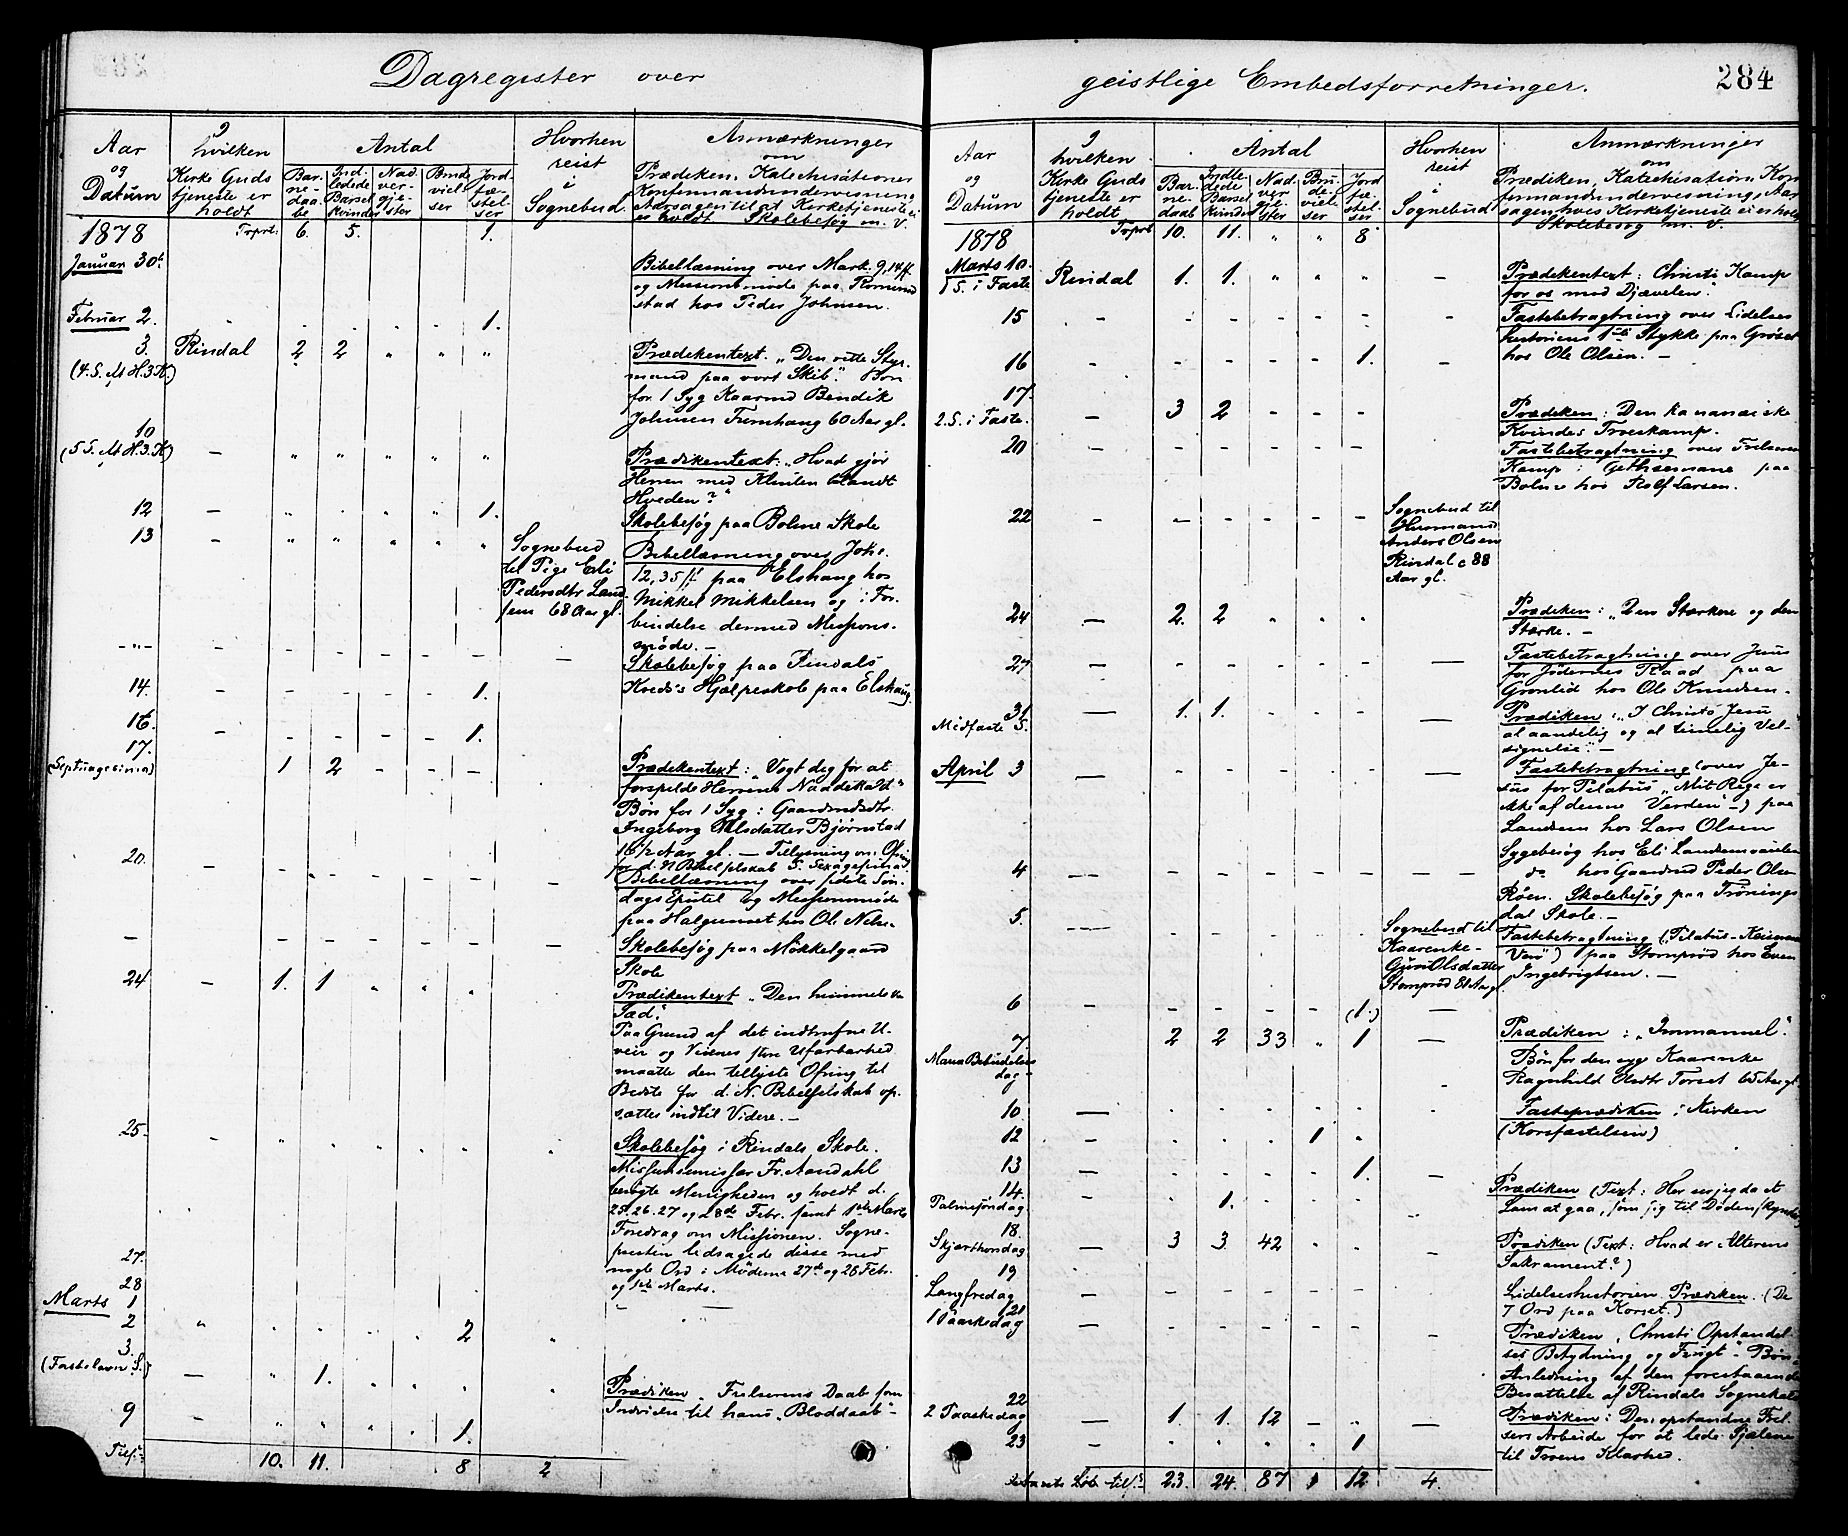 Dagregister over
Aar og Datum
I hvilken Kirke Gudstjeneste er holdt
Antal
Barnedaabe
Indledede Barselkvinder
Nadvergjester
Brudevielser
Jordfæstelser
Hvorhen reist i Sognebud
Anmærkninger
om
Prædiken, Katechisationer
Konfirmandundervisning
Aarsagen til at Kirketjeneste ei
er holdt Skolebesøg m. V.
1878 Trprt: 6. 5. 1.
Januar 30te
Bibellæsning over Mark. 9,14 ff
og Missionsmøde paa
stad hos Peder Johnsen.
Februar 2. 1.
3. Rindal 2 2 " " "
(4. S. M H.3.K.)
Prædikentext. „Den rette Styr-
mand paa vort Skib". Bøn
for 1 Syg Kaarmd Bendik
Johnsen 60 Aar gl.
10
(5 S. M H.3.K) - " " " " "
Prædikentext: „Hvad gjør
Herren med Klinten blandt
Hveden?"
12 - " " " " 1.
Skolebesøg paa Bolme Skole
13 - " " " " "
Sognebud
til Pige Eli
Pedersdtr Land-
sem 68 Aar gl.
Bibellæsning over Joh.
12,35 ff paa Elshaug hos
Mikkel Mikkelsen og i For-
bindelse dermed Missions-
møde. -
-"- - - - - - - -
Skolebesøg paa Rindals
Kreds's Hjælpeskole paa Elshaug
14. - - - - - 1.
16. - - - - - 1.
17.
(Septuagesima) 1 2 - - -
Prædikentext: „Vogt dig for at
forspilde Herrens Naadekald"
Bøn for 1 Syg: Gaardmdsdtr.
Ingeborg Olsdatter Bjørnstad
16½ Aar gl. - Tillysning om Ofring
for d. N Bibelselskab S. Sexagesima
20. - - - - - - -
Bibellæsning over sidste Søn-
dags Epistel og Missionsmøde
paa Halgunset hos Ole Nils.
- - - - - - -
Skolebesøg paa Møkkelgaard
Skole
24 - 1. 1 " " "
Prædikentext „Den himmelske
Sæd".
Paa Grund af det indtrufne U-
veir og Veienes store Ufarbarhed
maatte den tillyste Ofring til
Bedste for d. N. Bibelselskab op-
sættes indtil Videre. -
25. " " " " " " "
Skolebesøg i Rindals Skole.
Missionsemissær Fr. Aandahl
besøgte Menigheden og holdt d.
25. 26. 27 og 28de Febr. samt 1ste Marts
Foredrag om Missionen. Sogne-
presten ledsagede disse med
nogle Ord i Møderne 27de og 28 Febr.
og 1ste Marts.
27.
28
Marts 1
2 " 2
3.
(Fastelavn S.) - " 1. " " " "
Prædiken „Frelserens Daab som
Indvielse til hans „Bloddaab" -
9 - " " " " 1.
10. 11. 8 2
geistlige Embedsforretninger.
284
Aar og Datum
I hvilken Kirke Gudstjeneste er holdt
Antal
Barnedaab
Indledede Barselkvinder
Nadvergjester
Brudevielser
Jordfæstelser
Hvorhen reist i Sognebud
Anmærkninger
om
Prædiken, Katechisation, Kon-
firmandundervisning, Aar-
sagen, hvis Kirketjeneste ei er holdt
Skolebesøg m. V.
1878 Trprt 10. 11. " " 8
Marts 10.
1 S. i Faste Rindal 1. 1. " " " -
Prædikentext: Christi Kamp
for os med Djævelen".
15 - - - - - - -
Fastebetragtning over Lidelses
historiens 1ste Stykke paa Grøset
hos Ole Olsen. -
16 - - - - - 1. -
17.
2. S. i Faste. - 3 2 - - -
Prædiken: Den kananæiske
Kvindes Troeskamp.
20 - - - - - -
Fastebetragtning over Frelserens
Kamp i Gethsemane paa
Bolme hos Rolf Larsen.
22 - - - - - -
Sognebud til
Huusmand
Anders Olsen
Rindal c 88
Aar gl.
24 - 2. 2 " " "
Prædiken: „Den Stærkere og den
Stærke. -
27 - - - - - - -
Fastebetragtning over Jesus
for Jødernes Raad paa
Grønlid hos Ole Knudsen.
31
Midfaste S. - 1. 1. - - - -
Prædiken: „I Christo Jesu
al aandelig og al timelig Vel-
signelse". -
April 3 - - - - - - -
Fastebetragtning (over Je-
sus for Pilatus „Mit Rige er
ikke af denne Verden" -) paa
Landsem hos Lars Olsen
4 - - - - - - -
Sygebesøg hos Eli
do hos Gaardmd Peder Olsen
Røen. Skolebesøg paa Trønings
dal Skole. -
5.
Sognebud til
Kaarenke-
Guri Olsdatter
Stomprød 81 Aar gl.
Fastebetragtning („Pilatus-
) paa Stomprød hos Even
Ingebrigtsen. -
6 - - - - - (1.) -
7.
Maria Bebudelses
dag - 2 2 33 " 1 -
Prædiken: „Immanuel".
Bøn for den syge Kaarenke
Ragnhild Olsdtr Torset 65 Aar gl.
10 - - - - - -
Fasteprædiken i Kirken
(Korsfæstelsen)
12 - . . . 1 .
13 - - - - - 1. -
14.
Palmesøndag - 1.
Prædiken (Text: Her ser jeg da et
Lam at gaa, som jeg til Døden skynder
18.
Skjærthorsdag - 3 3. 42 " . -
Prædiken (Text: Hvad er Alterens
Sakrament?)
19
Langfredag - - - - - - -
Lidelseshistorien. Prædiken. (De
7 Ord paa Korset.)
21
1 Paaskedag - - - - - - -
Prædiken, Christi Opstandel-
ses Betydning og Frugt - Bøn i
Anledning af den forestaaende
Besættelse af Rindals Sognekald
22
2 Paaskedag - 1. 1. 12 - " -
Prædiken: Den opstandne Frel-
sers Arbeide for at lede Sjælene
til Troens Klarhed.
23 - . . . . 1
23. 24. 87 1 12 4.